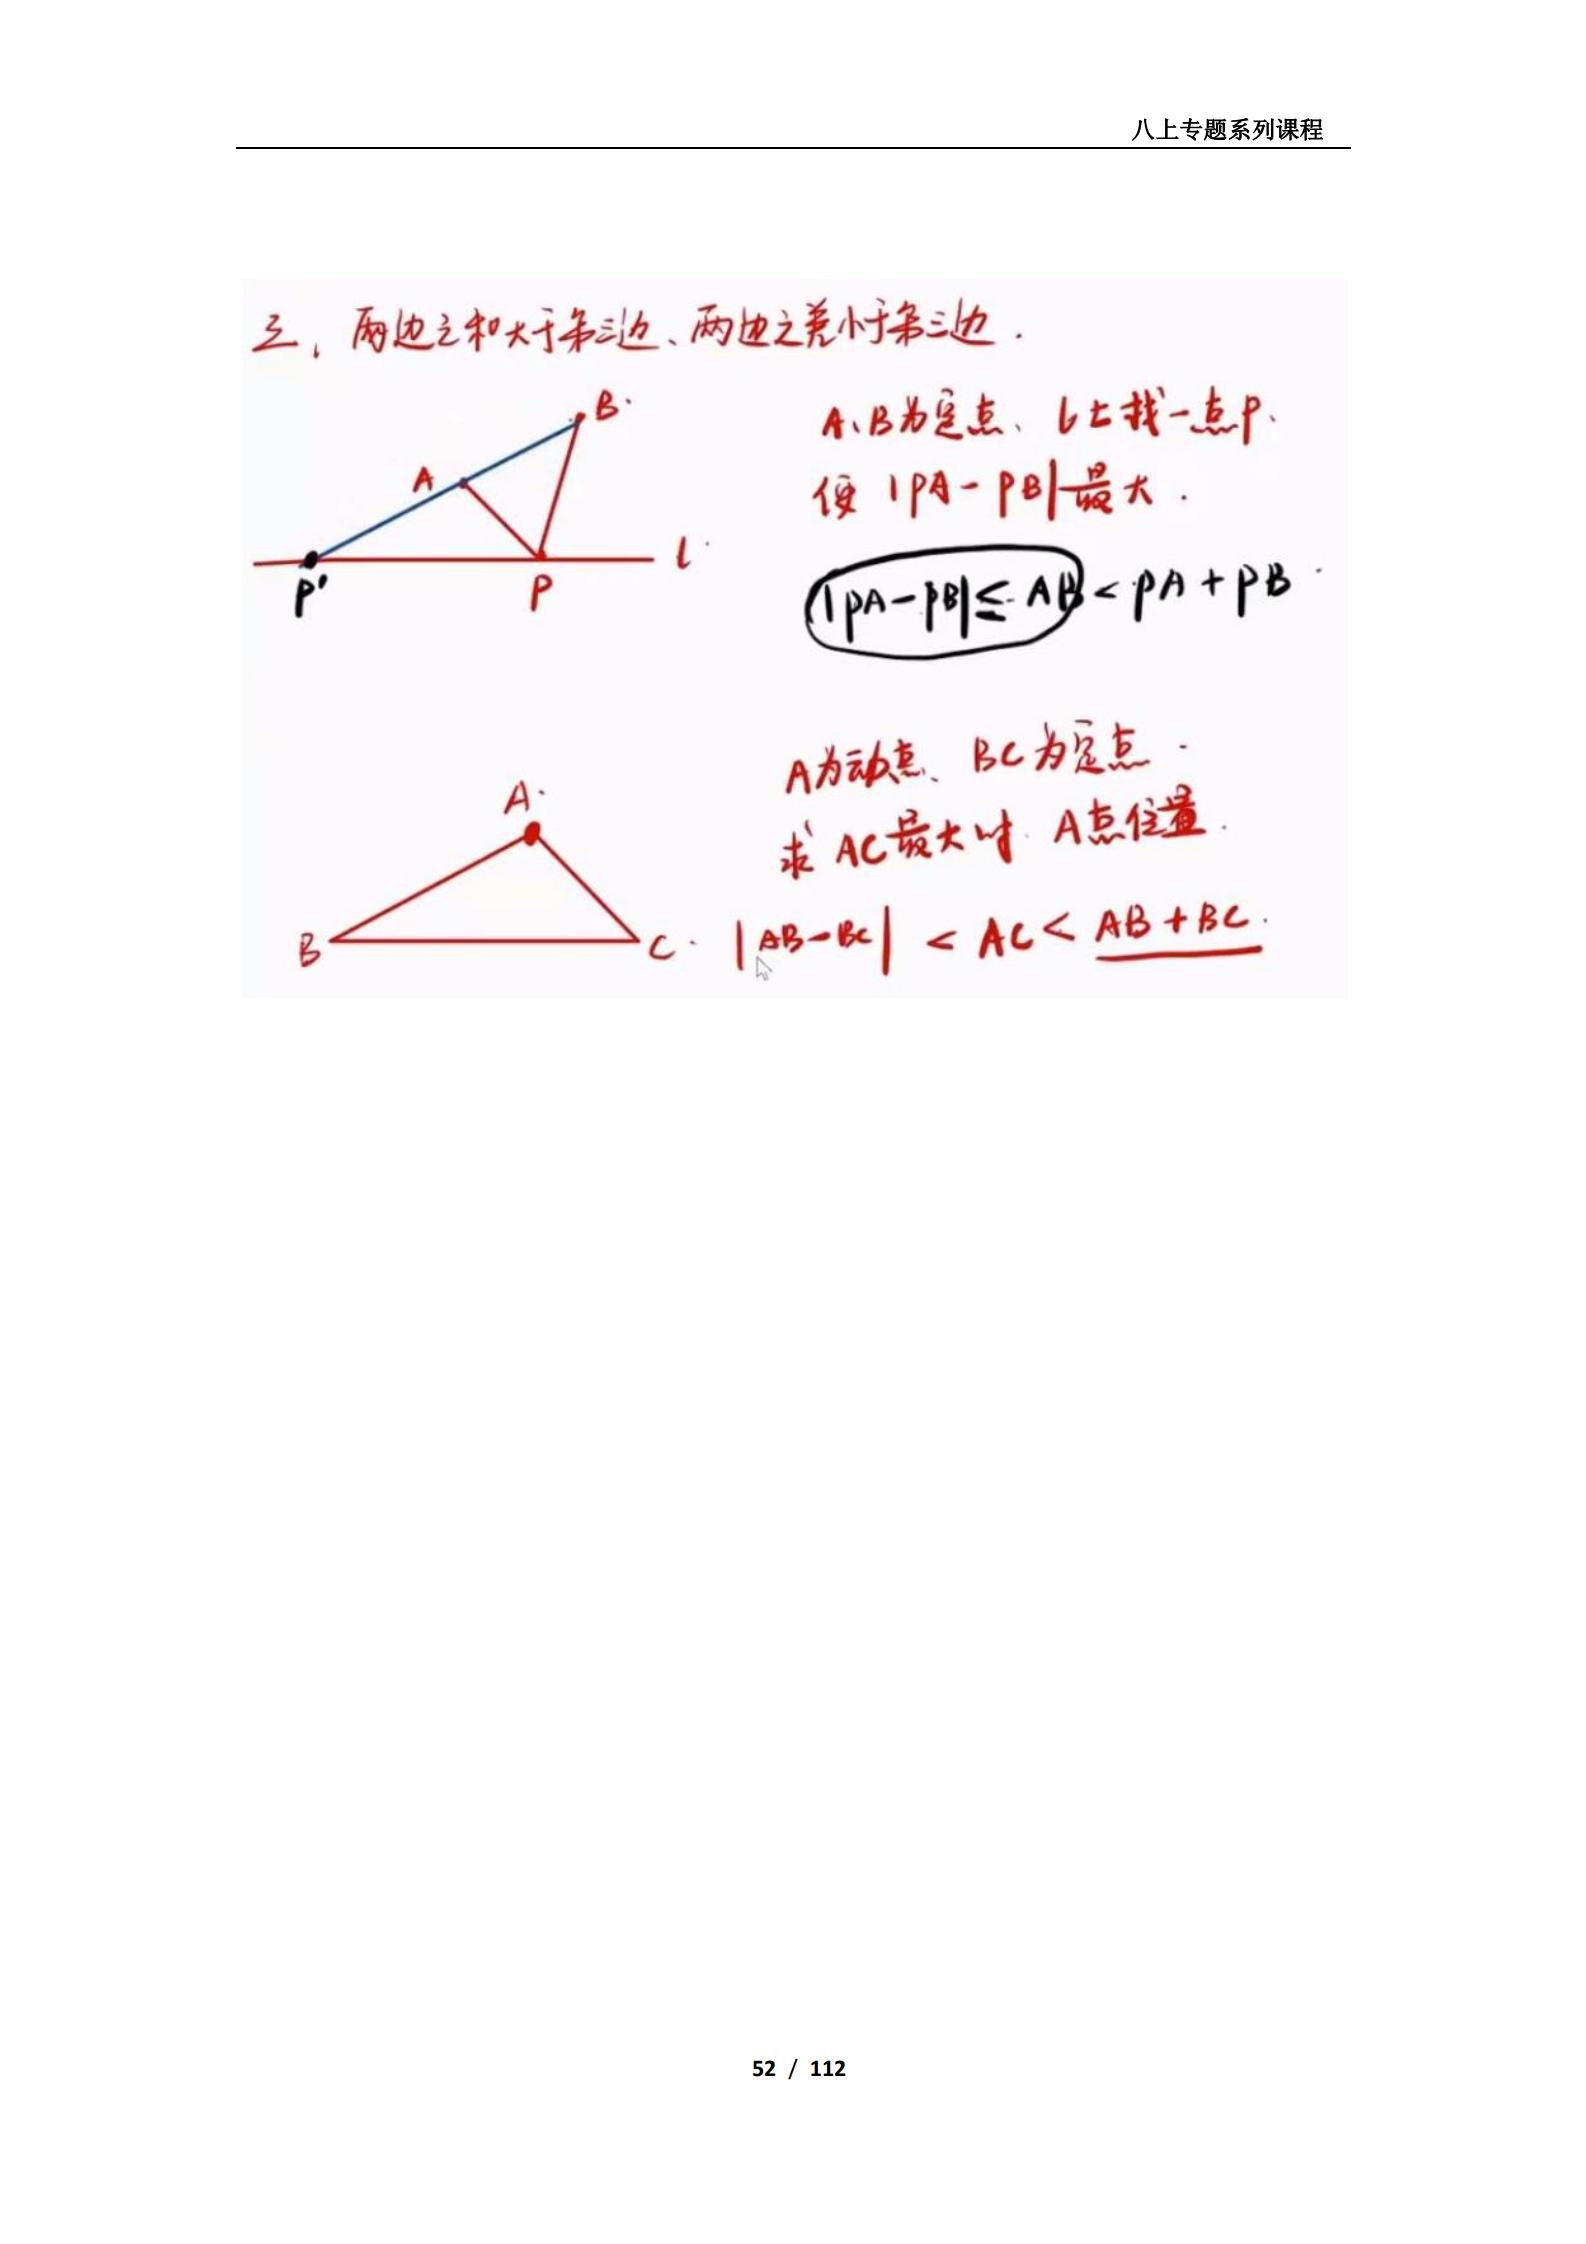 八上专题系列课程
三、两边之和大于第三边、两边之差小于第三边.
B
A
l
P'
P
A、B为定点、l上找一点P、
使|PA-PB|最大.
|PA-PB|≤AB<PA+PB
A
B
C
A为动点、BC为定点.
求AC最大时 A点位置.
|AB-BC|<AC<AB+BC.
52 / 112